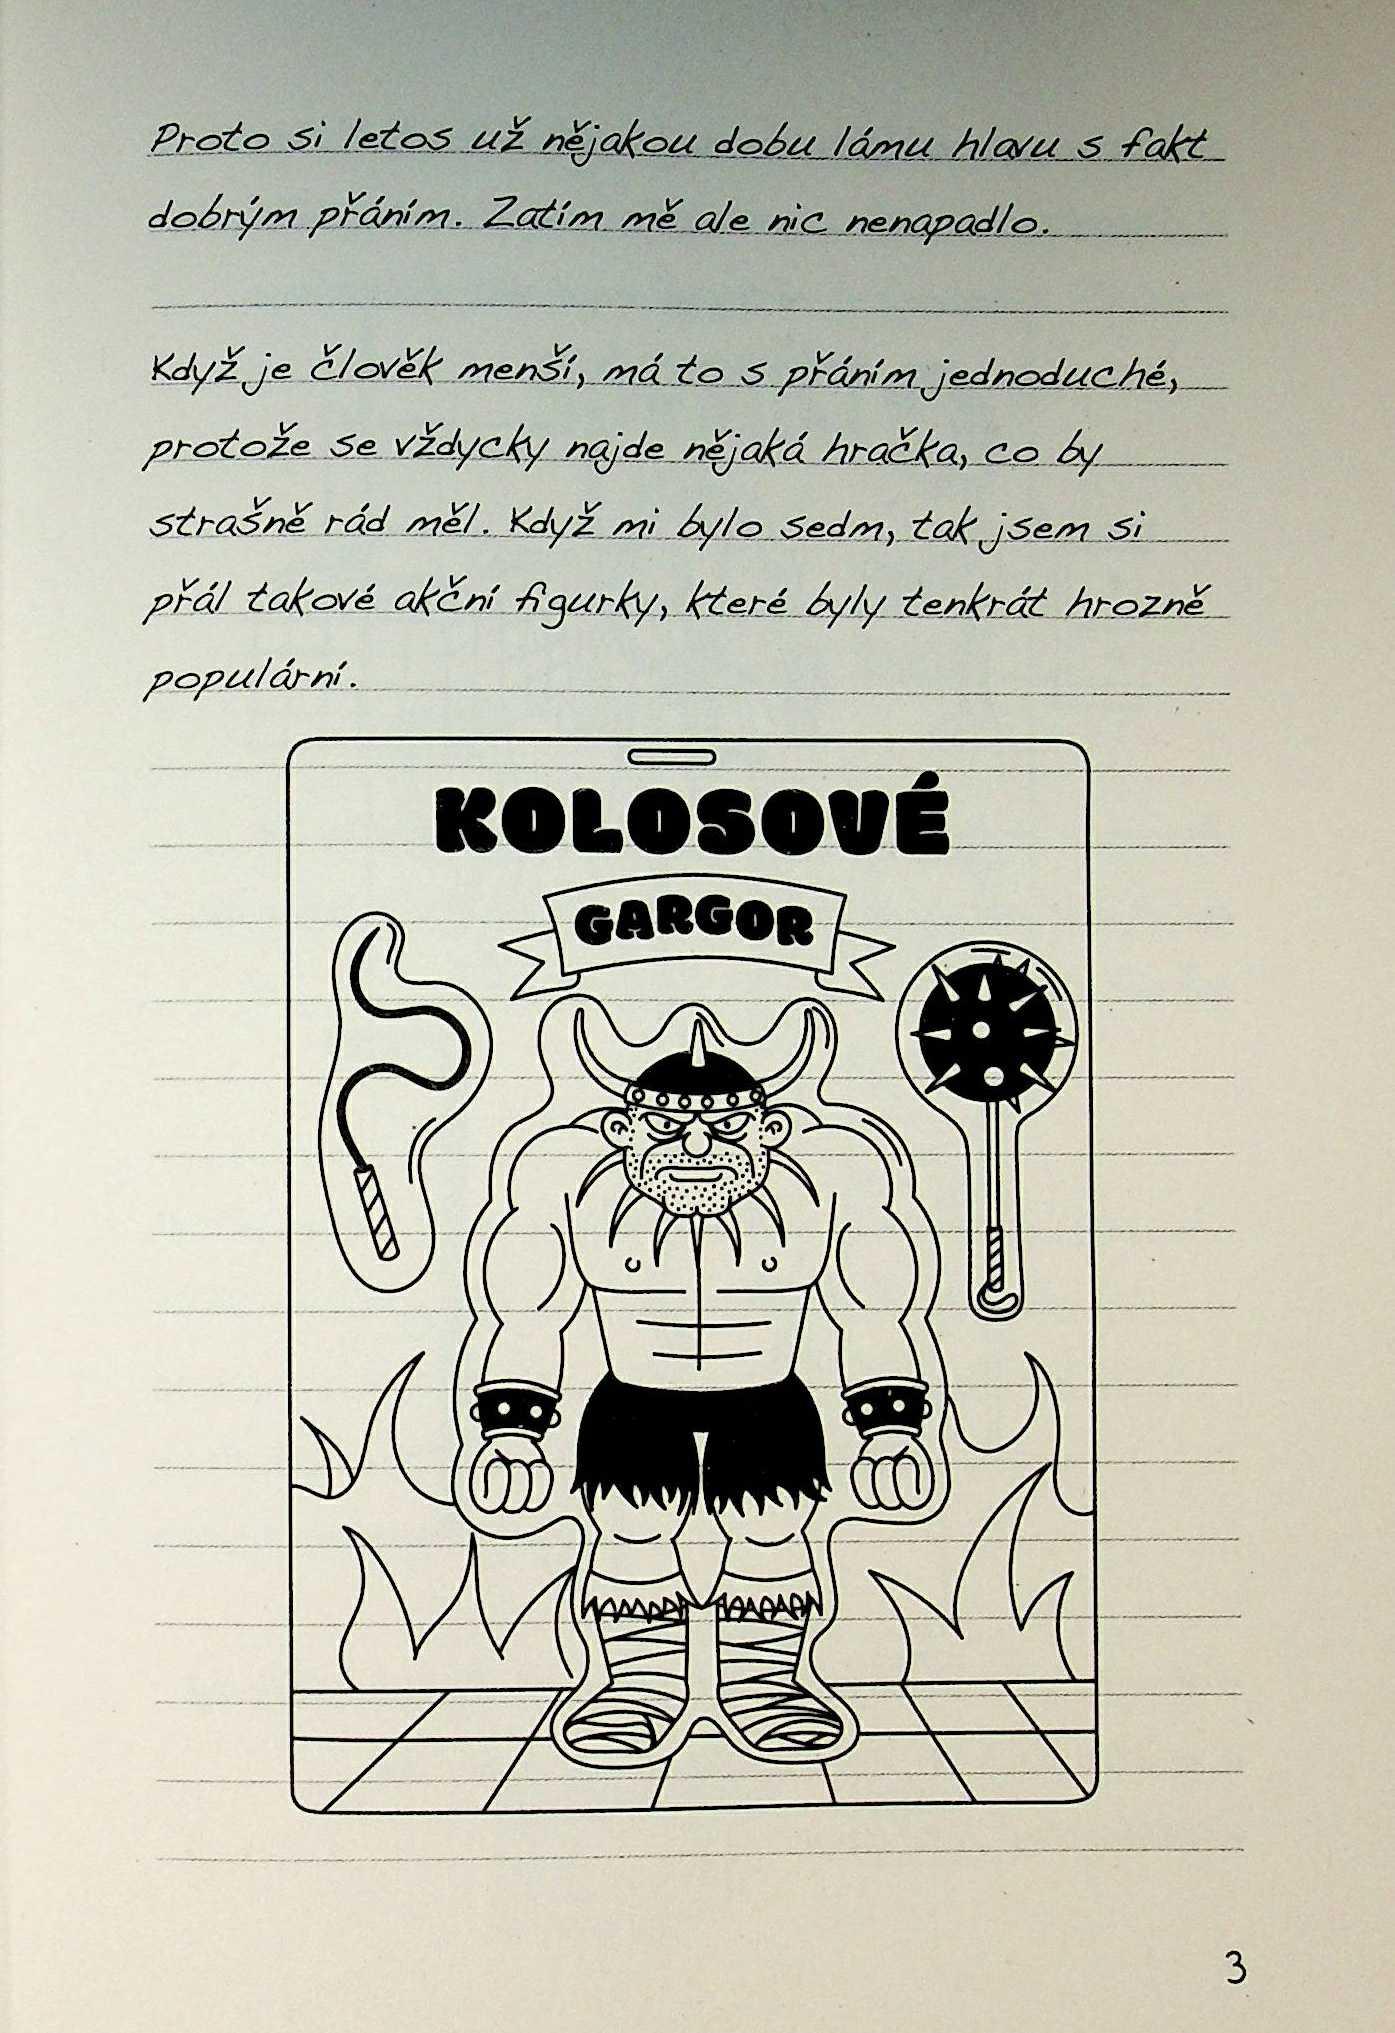 Proto si letos už nějakou dobu lámu hlavu s fakt
dobrým přáním. Zatím mě ale nic nenapadlo.
Když je člověk menší, má to s přáním jednoduché,
protože se vždycky najde nějaká hračka, co by
strašně rád měl. Když mi bylo sedm, tak jsem si
přál takové akční figurky, které byly tenkrát hrozně
populární.
KOLOSOVÉ
GARGOR
3